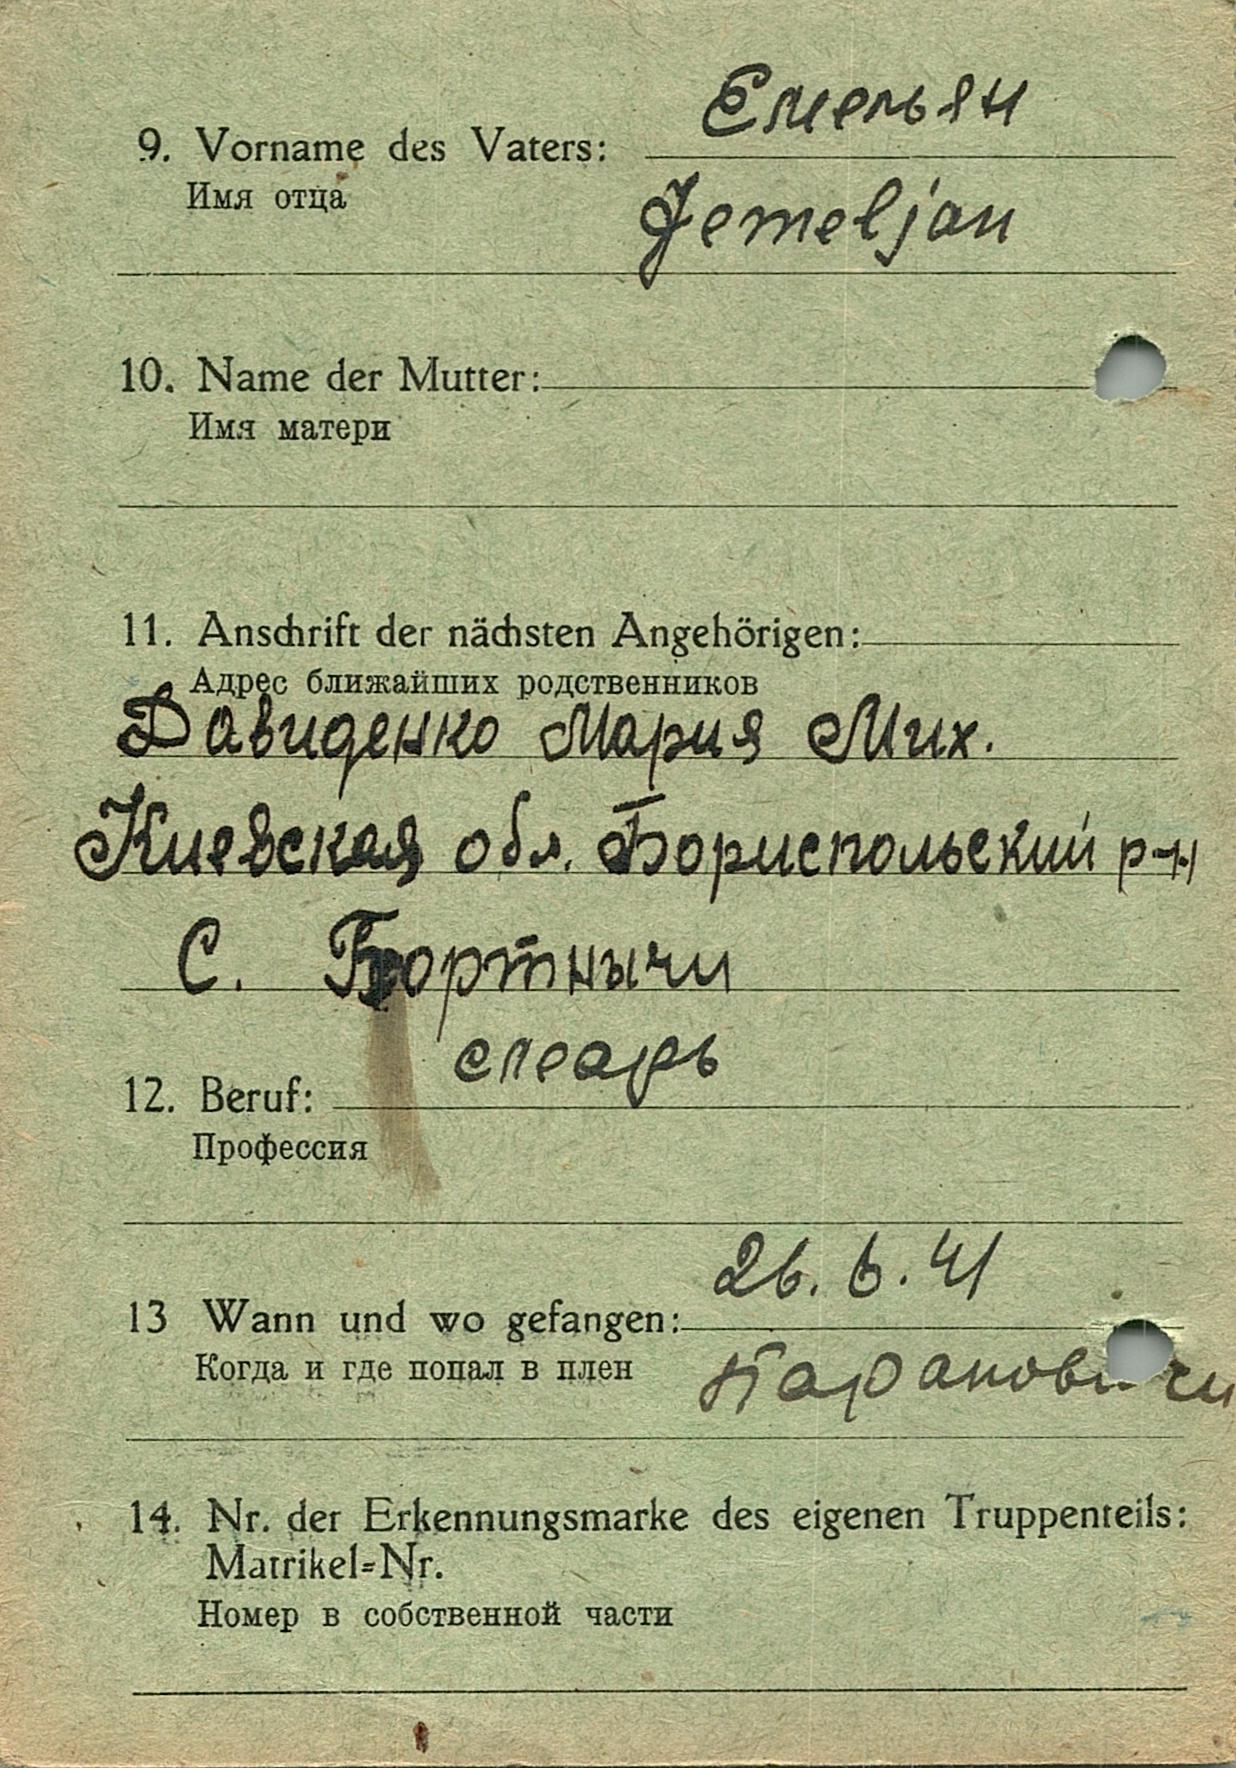 Емельян
9. Vorname des Vaters:
Имя отца
Jemeljan
10. Name der Mutter:
Имя матери
11. Anschrift der nächsten Angehörigen:
Адрес ближайших родственников
Давиденко Мария Мих.
Киевская обл. Бориспольский р-н
С. Бортнычи
слеарь
12. Beruf:
Профессия
26. 6. 41
13 Wann und wo gefangen:
Когда и где попал в плен
14. Nr. der Erkennungsmarke des eigenen Truppenteils:
Matrikel=Nr.
Номер в собственной части